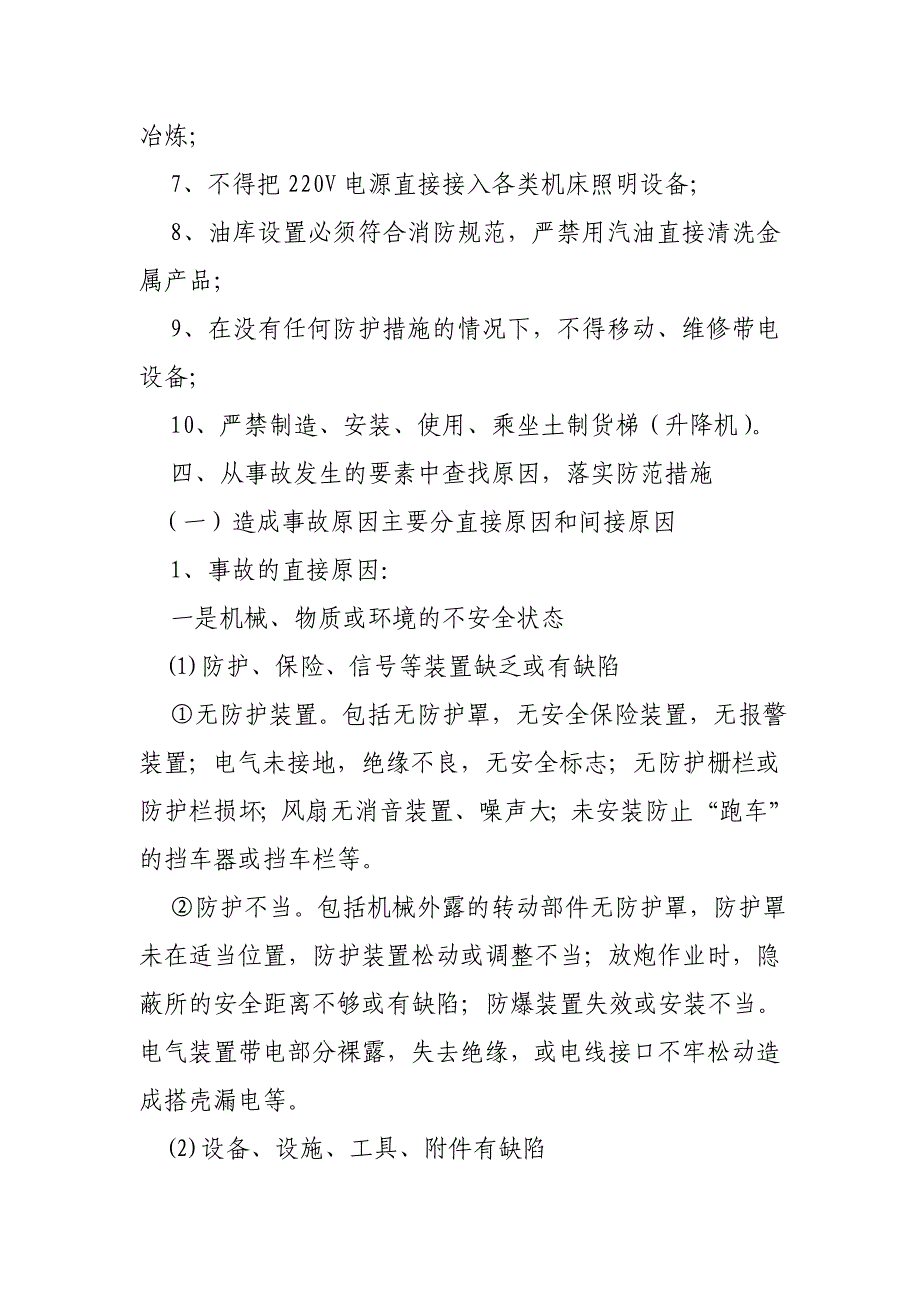 冶炼；
7、不得把 220V 电源直接接入各类机床照明设备；
8、油库设置必须符合消防规范，严禁用汽油直接清洗金
属产品；
9、在没有任何防护措施的情况下，不得移动、维修带电
设备；
10、严禁制造、安装、使用、乘坐土制货梯（升降机）。
四、从事故发生的要素中查找原因，落实防范措施
（一）造成事故原因主要分直接原因和间接原因
1、事故的直接原因：
一是机械、物质或环境的不安全状态
(1)防护、保险、信号等装置缺乏或有缺陷
①无防护装置。包括无防护罩，无安全保险装置，无报警
装置；电气未接地，绝缘不良，无安全标志；无防护栅栏或
防护栏损坏；风扇无消音装置、噪声大；未安装防止“跑车”
的挡车器或挡车栏等。
②防护不当。包括机械外露的转动部件无防护罩，防护罩
未在适当位置，防护装置松动或调整不当；放炮作业时，隐
蔽所的安全距离不够或有缺陷；防爆装置失效或安装不当。
电气装置带电部分裸露，失去绝缘，或电线接口不牢松动造
成搭壳漏电等。
(2)设备、设施、工具、附件有缺陷